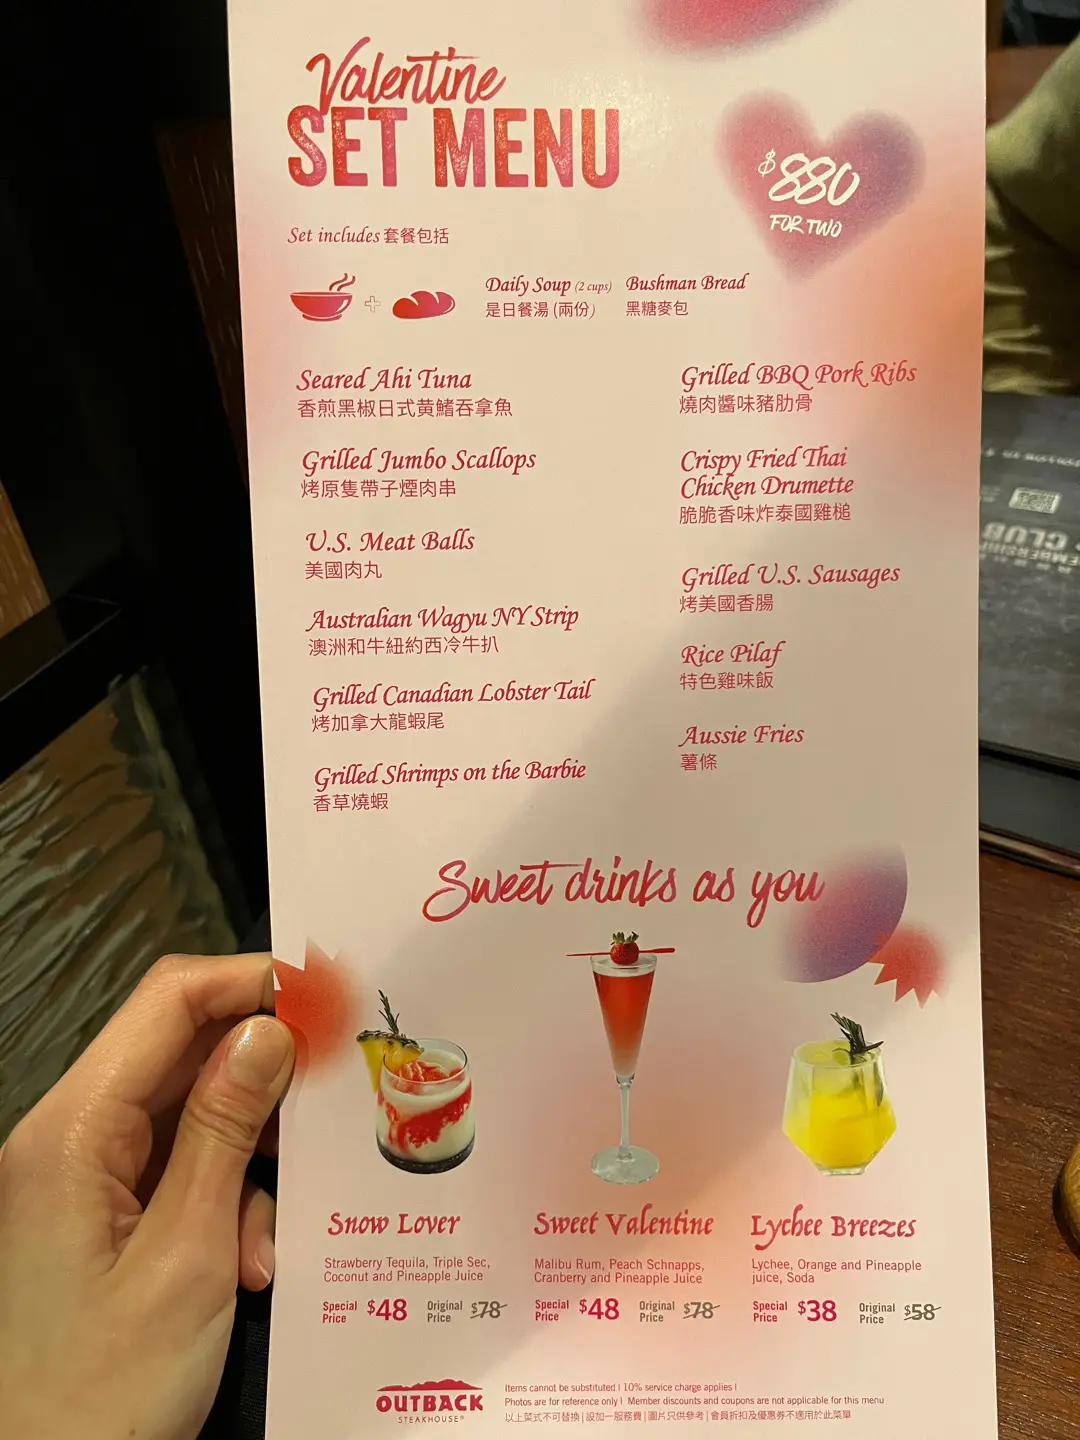 Valentine
SET MENU
$880
FOR TWO
Set includes 套餐包括
Daily Soup (2 cups)
是日餐湯 (兩份)
Bushman Bread
黑糖麥包
Seared Ahi Tuna
香煎黑椒日式黄鰭吞拿魚
Grilled Jumbo Scallops
烤原隻帶子煙肉串
U.S. Meat Balls
美國肉丸
Australian Wagyu NY Strip
澳洲和牛紐約西冷牛扒
Grilled Canadian Lobster Tail
烤加拿大龍蝦尾
Grilled Shrimps on the Barbie
香草燒蝦
Grilled BBQ Pork Ribs
燒肉醬味豬肋骨
Crispy Fried Thai
Chicken Drumette
脆脆香味炸泰國雞槌
Grilled U.S. Sausages
烤美國香腸
Rice Pilaf
特色雞味飯
Aussie Fries
薯條
Sweet drinks as you
Snow Lover
Strawberry Tequila, Triple Sec,
Coconut and Pineapple Juice
Special Price $48 Original Price $78
Sweet Valentine
Malibu Rum, Peach Schnapps,
Cranberry and Pineapple Juice
Special Price $48 Original Price $78
Lychee Breezes
Lychee, Orange and Pineapple
juice, Soda
Special Price $38 Original Price $58
OUTBACK
STEAKHOUSE®
Items cannot be substituted | 10% service charge applies |
Photos are for reference only | Member discounts and coupons are not applicable for this menu
以上菜式不可替換 | 設加一服務費 | 圖片只供參考 | 會員折扣及優惠券不適用於此菜單
CLUB